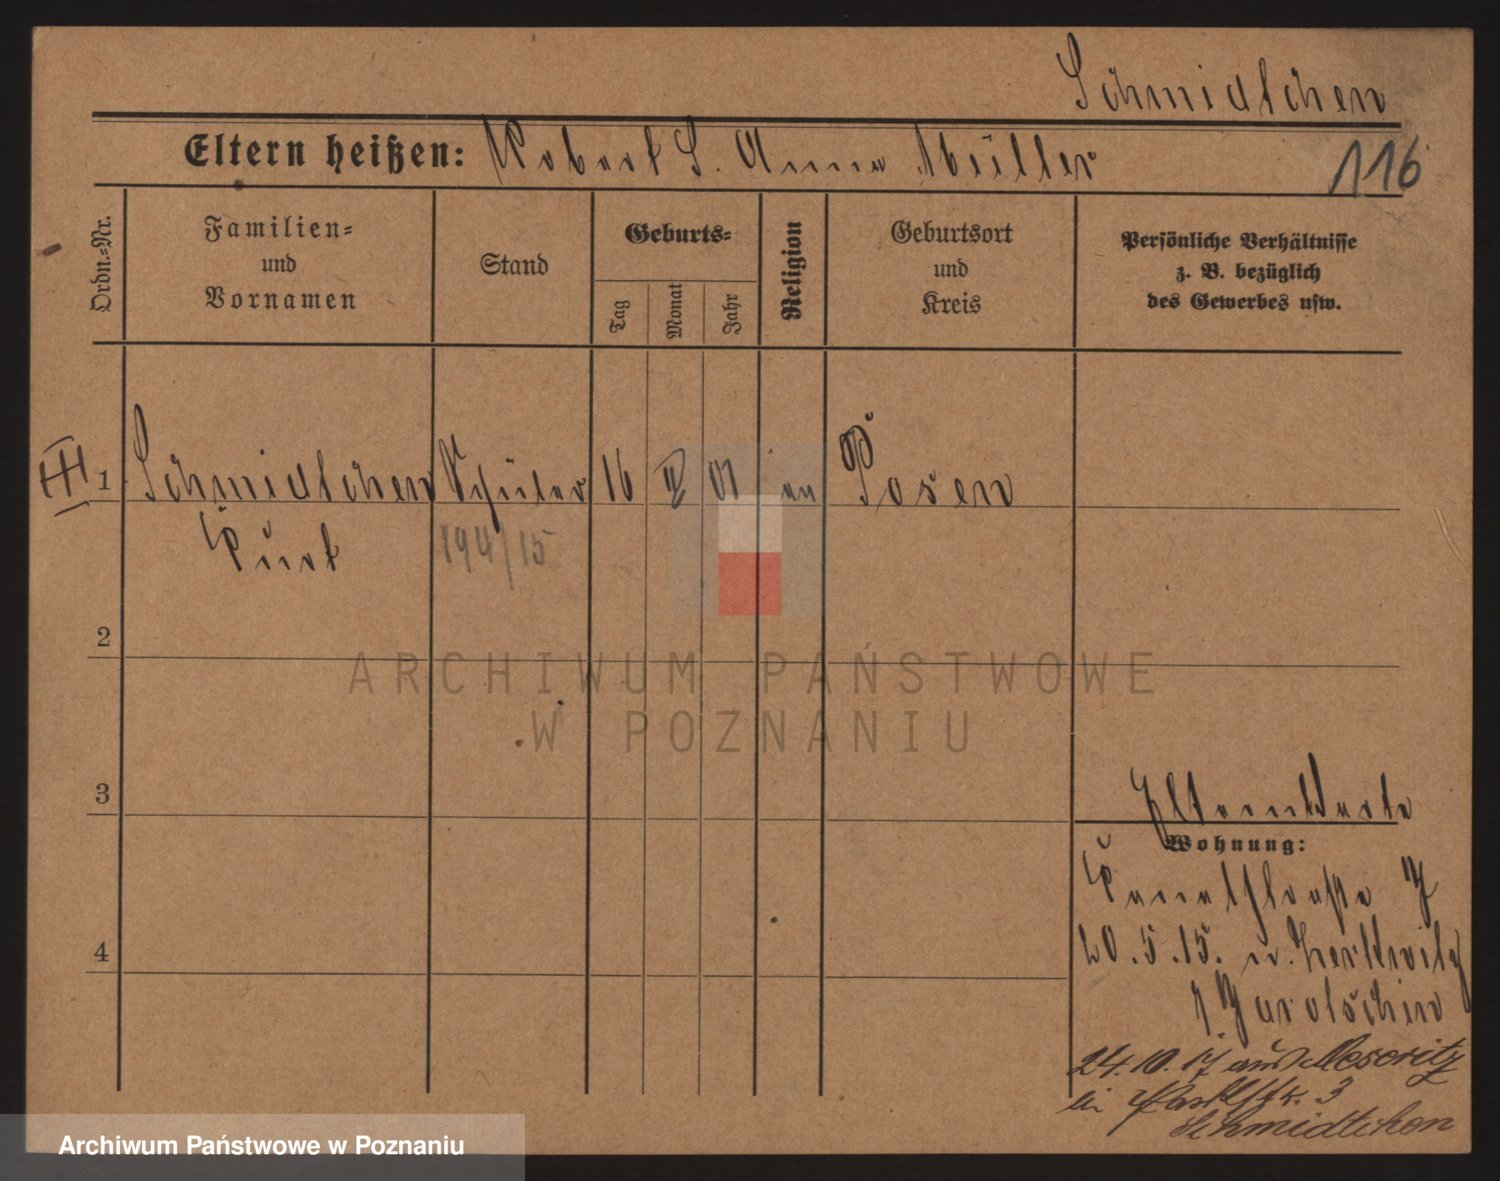 Schmidtchen
Eltern heißen: Robert S. Anna Müller
116
Ordn.-Nr.
Familien=
und
Vornamen
Stand
Geburts=
Tag
Monat
Jahr
Religion
Geburtsort
und
Kreis
Persönliche Verhältnisse
z. B. bezüglich
des Gewerbes usw.
III
1 Schmidtchen Schüler 16 II 01 ev Posen
Curt 194/15
2
ARCHIWUM PAŃSTWOWE
W POZNANIU
3
Elternkarte
Wohnung:
20.5.15. n. Zerkwitz
Jarotschin
4
24.10.17 aus Meseritz
bei 3
Schmidtchen
Archiwum Państwowe w Poznaniu